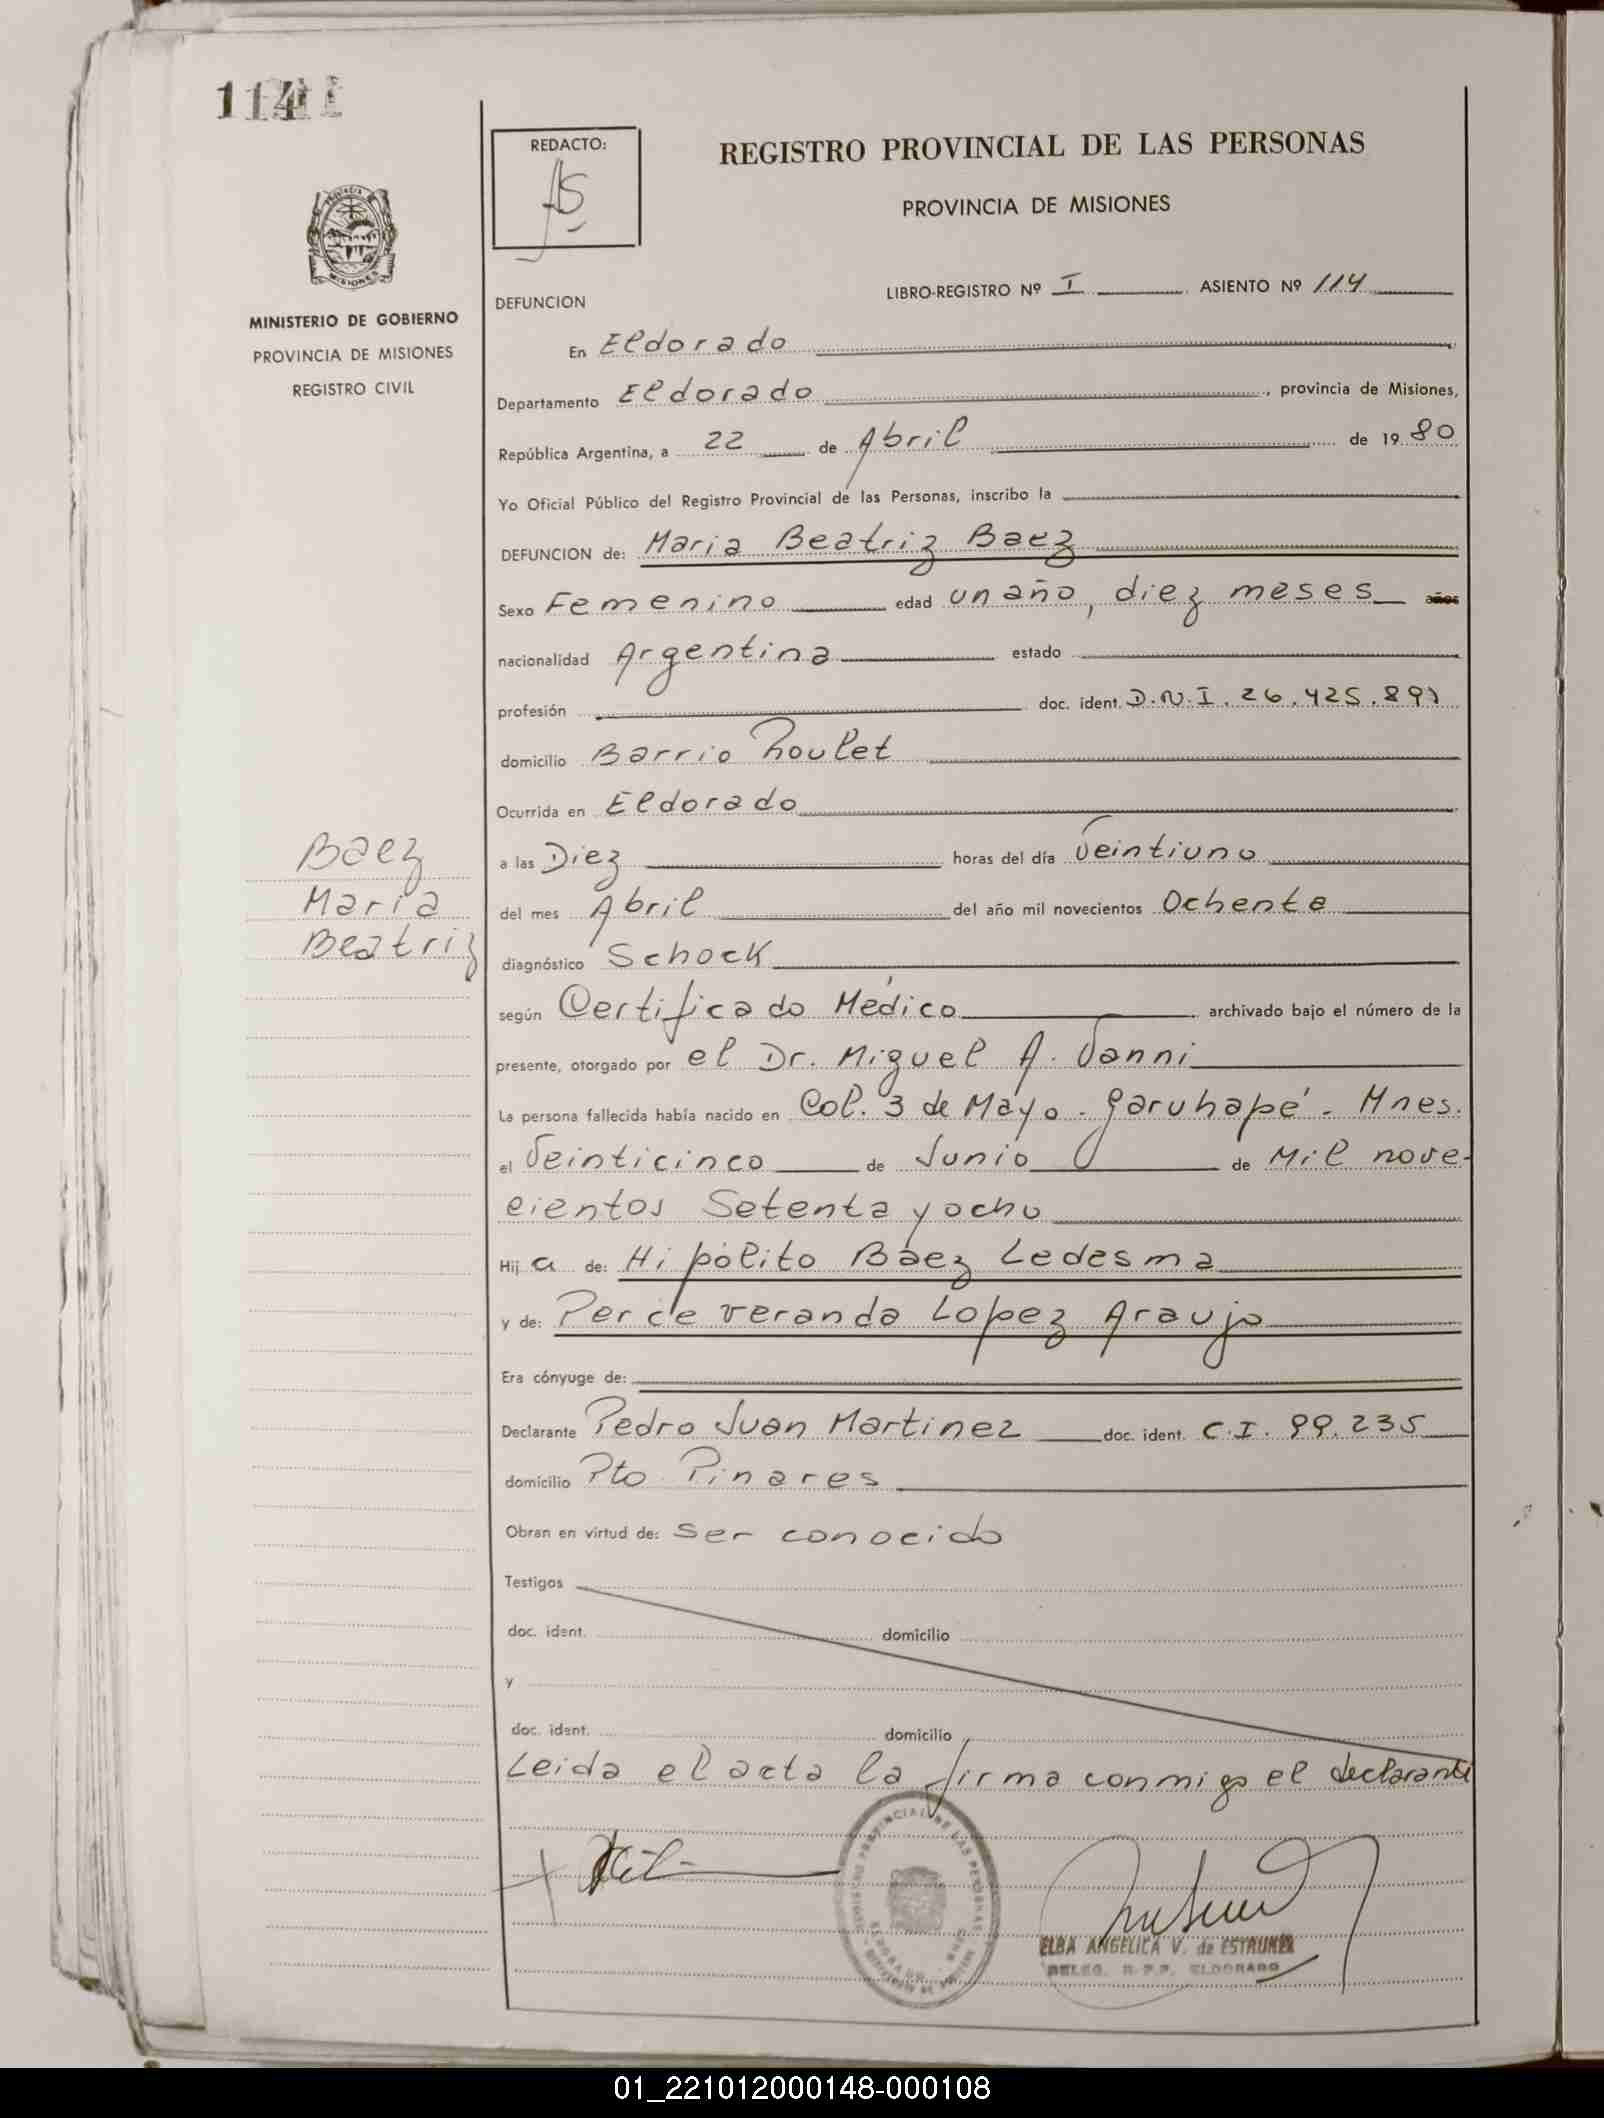 114
REDACTO:
REGISTRO PROVINCIAL DE LAS PERSONAS
PROVINCIA DE MISIONES
MINISTERIO DE GOBIERNO
PROVINCIA DE MISIONES
REGISTRO CIVIL
LIBRO-REGISTRO Nº I ASIENTO Nº 114
DEFUNCION
En Eldorado
Departamento Eldorado, provincia de Misiones,
República Argentina, a 22 de Abril de 1980
Yo Oficial Público del Registro Provincial de las Personas, inscribo la
DEFUNCION de: Maria Beatriz Baez
Sexo Femenino edad un año, diez meses años
nacionalidad Argentina estado
profesión doc. ident. D.N.I. 26.425.891
domicilio Barrio Roulet
Ocurrida en Eldorado
a las Diez horas del día Veintiuno
del mes Abril del año mil novecientos Ochenta
diagnóstico Schock
según Certificado Médico archivado bajo el número de la
presente, otorgado por el Dr. Miguel A. Vanni
La persona fallecida había nacido en Col. 3 de Mayo - Garuhapé - Mnes.
el Veinticinco de Junio de Mil nove-
cientos Setenta y ocho
Hija de: Hipólito Báez Ledesma
y de: Perceveranda Lopez Araujo
Era cónyuge de:
Declarante Pedro Juan Martinez doc. ident. C.I. 99.235
domicilio Pto Pinares
Obran en virtud de: ser conocido
Testigos
doc. ident. domicilio
y
doc. ident. domicilio
Leida el acta la firma conmigo el declarante
Baez
Maria
Beatriz
ELBA ANGELICA V. de ESTRUMER
DELEG. R.P.P. ELDORADO
01_221012000148-000108